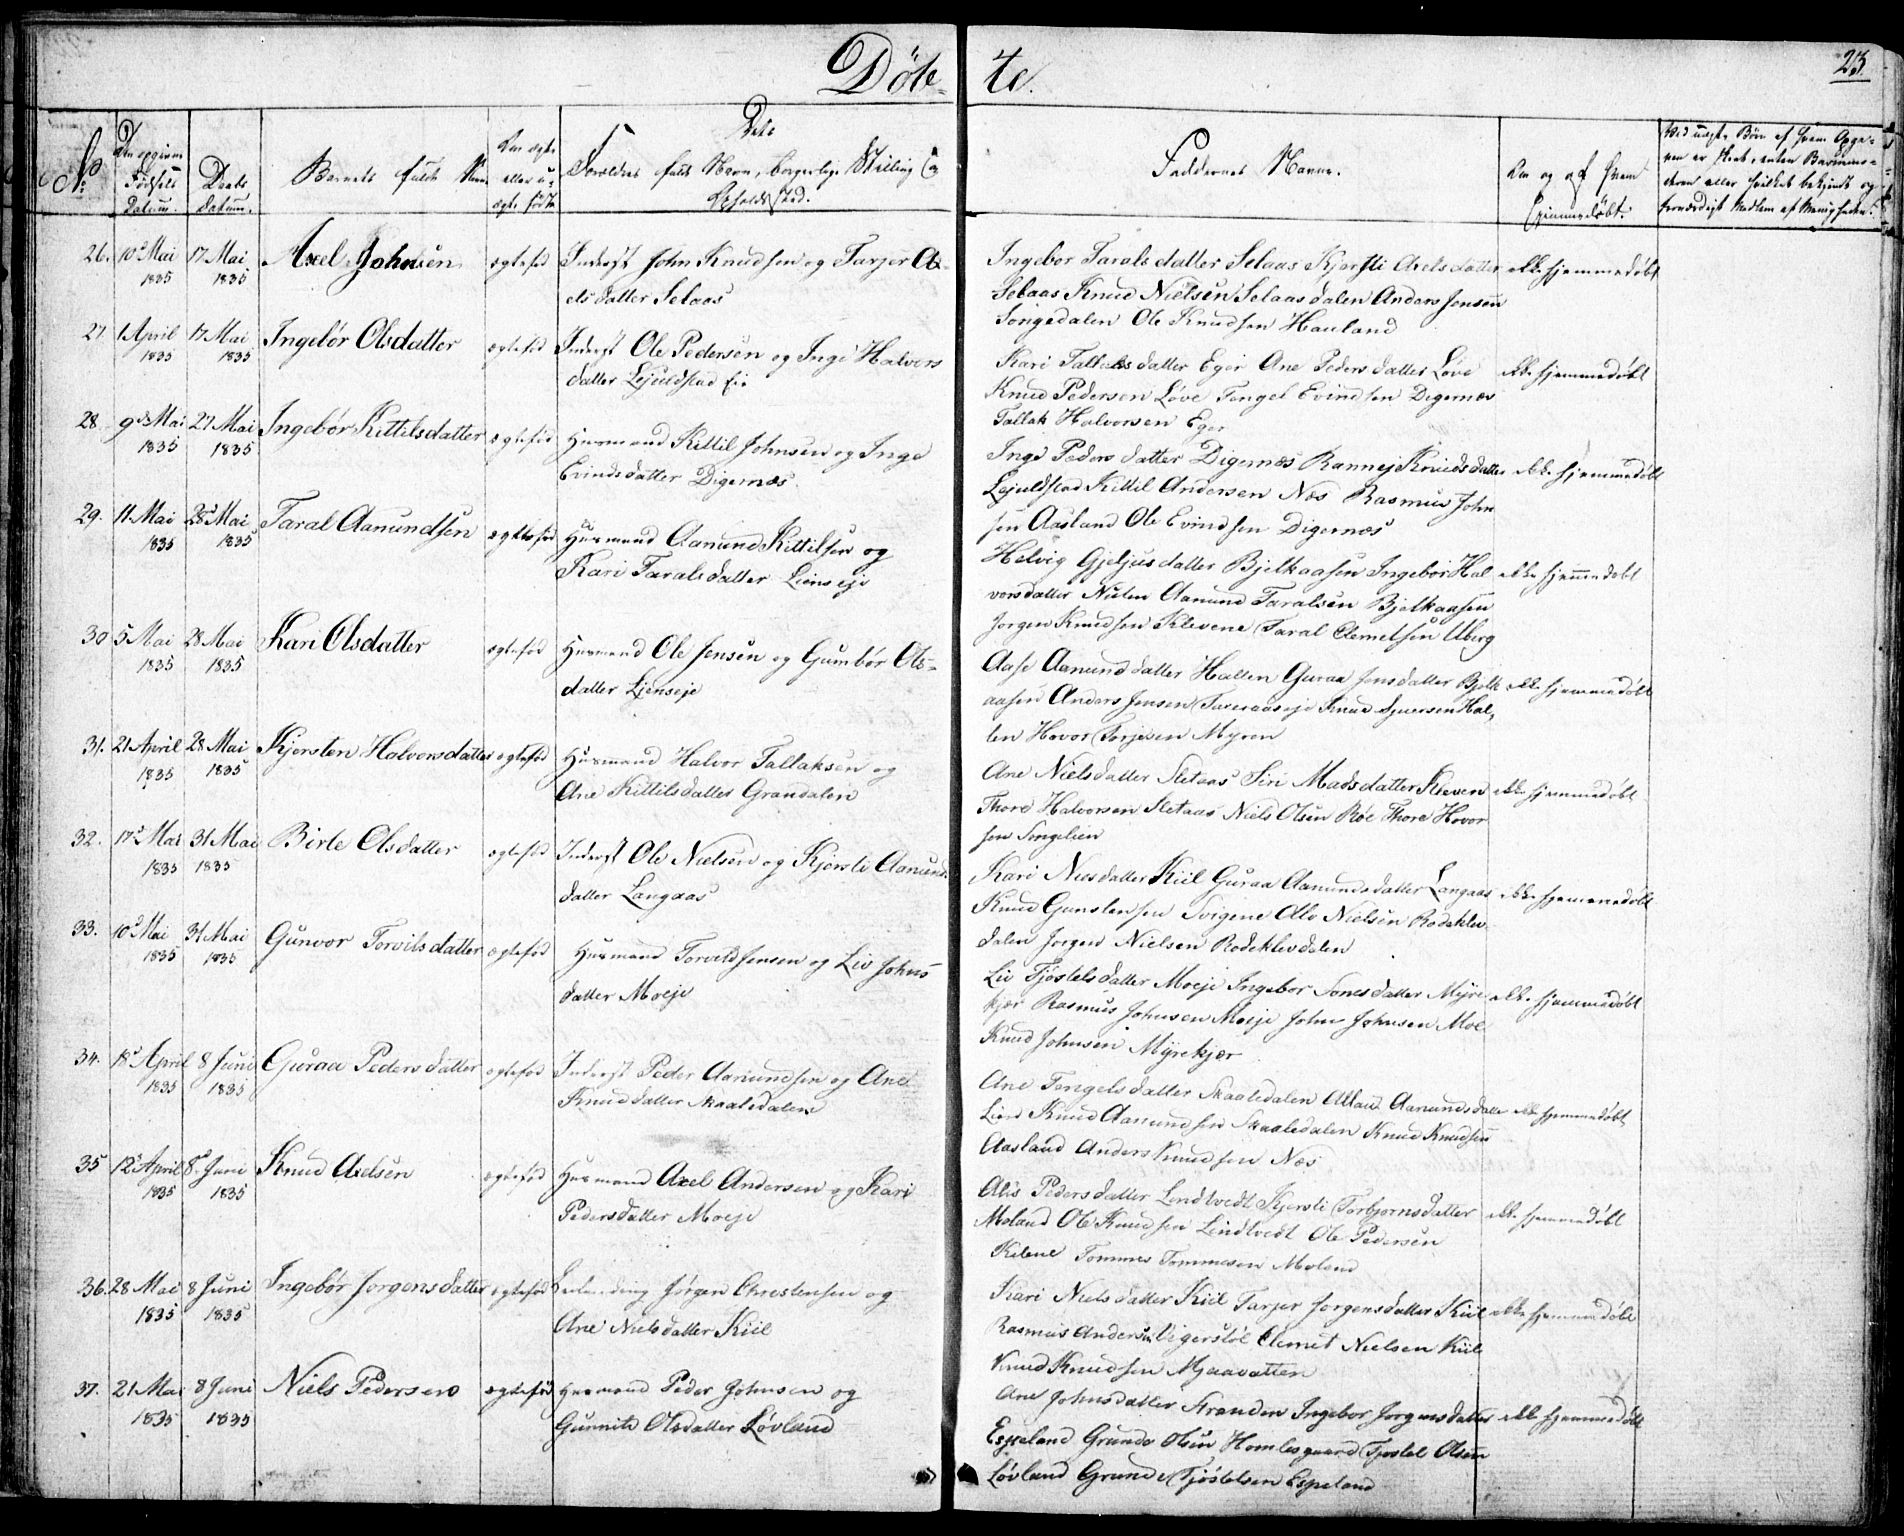 Døbte.
23
No
Den opgivne Fødsels Datum.
Daabs Datum.
Barnets fulde Navn
Om ægte eller uægte født
Dets Forældres fulde Navn, borgerlige Stilling og Opholdssted.
Faddernes Navne.
Om og af hvem hjemmedøbt.
26. 10d Mai 1835 17 Mai 1835 Axel Johnsen ægtefød Inderst John Knudsen og Tarjer Ax-
els datter Selaas
Ingebor Tarals datter Selaas Kjersti Axelsdatter ikke hjemmedøbt
Selaas Knud Nielsen Selaasdalen Anders Jensen
Songedalen Ole Knudsen Hauland
27 1 April 1835 17 Mai 1835 Ingebør Olsdatter ægtefød Inderst Ole Pedersen og Inge Halvors
datter Lejuldstad Eie
Kari Tallaksdatter Eger Ane Pedersdatter Løve ikke hjemmedøbt
Knud Pedersen Løve Tengel Evindsen Digernæs
Tallak Halvorsen Eger
28. 9de Mai 1835 27 Mai 1835 Ingebør Kittilsdatter ægtefød Husmand Kittil Johnsen og Inge
Evindsdatter Digernæs.
Inge Pedersdatter Digernæs Rannej Knudsdatter ikke hjemmedøbt
Lejuldstad Kittil Andersen Næs Rasmus John
sen Aasland Ole Evindsen Digernæs
29. 11 Mai 1835 28 Mai 1835 Taral Aanundsen ægtefød Husmand Aanund Kittilsen og
Kari Taralsdatter Lienseje
Helvig Gjeljusdatter Bjelkaasen Ingebor Hal ikke hjemmedøbt
vorsdatter Aanund Taralsen Bjelkaasen
Jorgen Knudsen Klevene Taral Clemetsen Uberg
30 5 Mai 1835 28 Mai 1835 Kari Olsdatter ægtefød Husmand Ole Jensen og Gumbør Ols-
datter Lienseje
Aase Aanunddatter Hallen Guraa Jensdatter Bjelk ikke hjemmedøbt
aasen Anders Jensen Knud Hal,
len Hovor Torjesen Myren
31. 21 April 1835 28 Mai 1835 Kjersten Halvorsdatter ægtefød Husmand Halvor Tallaksen og
Ane Kittilsdatter Grandalen
Ane Nielsdatter Sletaas Siri Madsdatter Kleven ikke hjemmedøbt
Thore Halvorsen Sletaas Niels Olsen Røe Thore Hovor
sen Songelien
32. 17d Mai 1835 31 Mai 1835 Birte Olsdatter ægtefød Inderst Ole Nielsen og Kjersti Aanunds
datter Langaas
Kari Nielsdatter Kiil Guraa Aanundsdatter Langaas ikke hjemmedøbt
Knud Gunstensen Svigene Ole Nielsen Rødeklev
dalen Jorgen Nielsen Rødeklevdalen
33. 10d Mai 1835 31 Mai 1835 Gunvor Torvilsdatter ægtefød Husmand Torvild Jensen og Liv Johns
datter Moeje
Liv Tjøstelsdatter Moeje Ingebor Jonesdatter Myre ikke hjemmedøbt
kjær Rasmus Johnsen Moeje John Johnsen Moe
Knud Johnsen Myrekjær
34. 18d April 1835 8 Juni 1835 Guraa Pedersdatter ægtefød Inderst Peder Aanundsen og Ane
Knuddatter Skaaledalen
Ane Tengelsdatter Skaaledalen Aanundsdatter ikke hjemmedøbt
Lien Knud Aanundsen Skaaledalen Knud Knudsen
Aasland Anders Knudsen Næs
35 12 April 1835 8d Juni 1835 Knud Axelsen ægtefød Husmand Axel Andersen og Kari
Pedersdatter Moeje
Alis Pedersdatter Lindtvedt Kjersti Torbjornsdatter ikke hjemmedøbt
Moland Ole Knudsen Lindtvedt Ole Pedersen
Kilene Tommes Tommesen Moland
36. 28 Mai 1835 8 Juni 1835 Ingebør Jorgensdatter ægtefød Jørgen Christensen og
Ane Nielsdatter Kiil
Kari Nielsdatter Kiil Tarjer Jorgensdatter Kiil ikke hjemmedøbt
Rasmus Andersen Vigerstøl Clemet Nielsen Kiil
Knud Knudsen Mjaavatten
37. 21 Mai 1835 8 Juni 1835 Niels Pedersen ægtefød Husmand Peder Johnsen og
Gunnild Olsdatter Løvland
Ane Johnsdatter Stranden Ingebor Jorgensdatter ikke hjemmedøbt
Espeland Grunde Olsen Homlesgaard Tjostel Olsen
Løvland Grunde Tjøstelsen Espeland